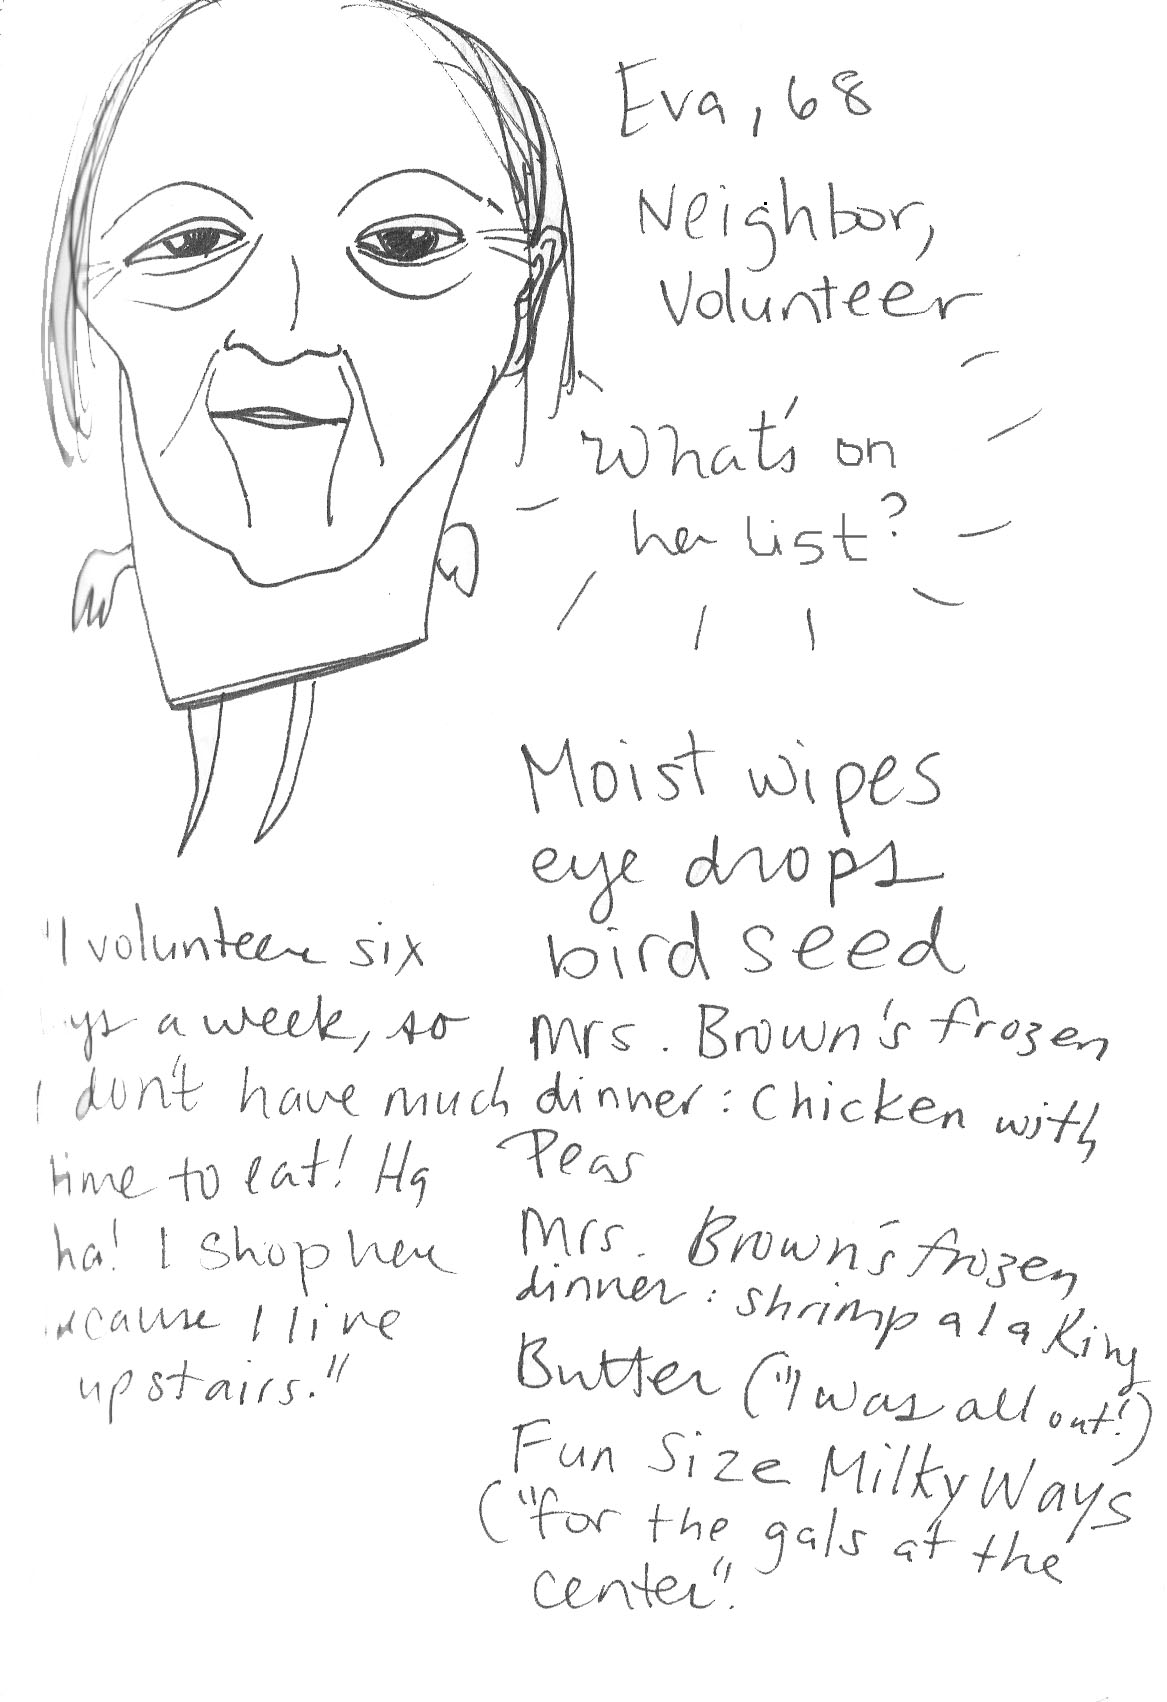 Eva, 68
Neighbor,
Volunteer
What's on
her list?
Moist wipes
eye drops
bird seed
Mrs. Brown's frozen
dinner: Chicken with
Peas
Mrs. Brown's frozen
dinner: shrimp a la King
Butter ("I was all out!)
Fun Size Milky Ways
("for the gals at the
center".
"I volunteer six
ys a week, so
I don't have much
time to eat! Ha
ha! I shop here
ecause I live
upstairs."